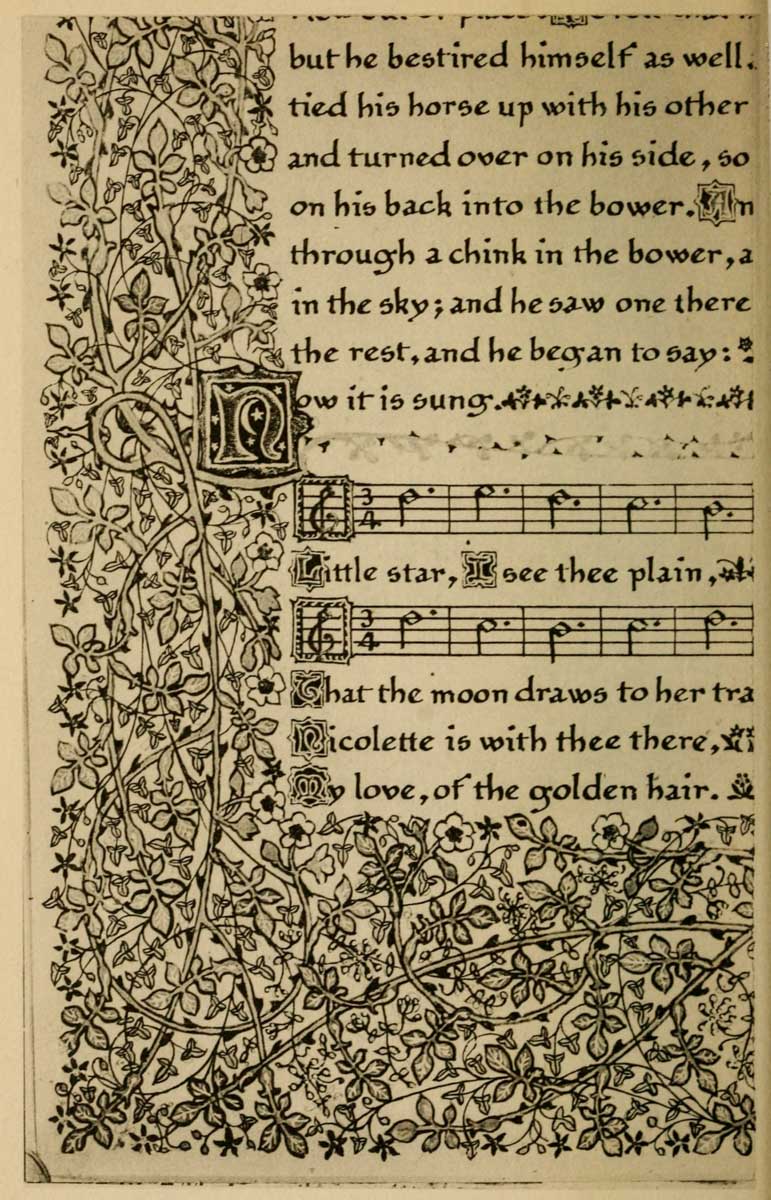 but he bestired himself as well.
tied his horse up with his other
and turned over on his side, so
on his back into the bower. An
through a chink in the bower, a
in the sky; and he saw one there
the rest, and he began to say:
Now it is sung.
3
4
Little star, I see thee plain,
3
4
That the moon draws to her tra
Nicolette is with thee there,
My love, of the golden hair.